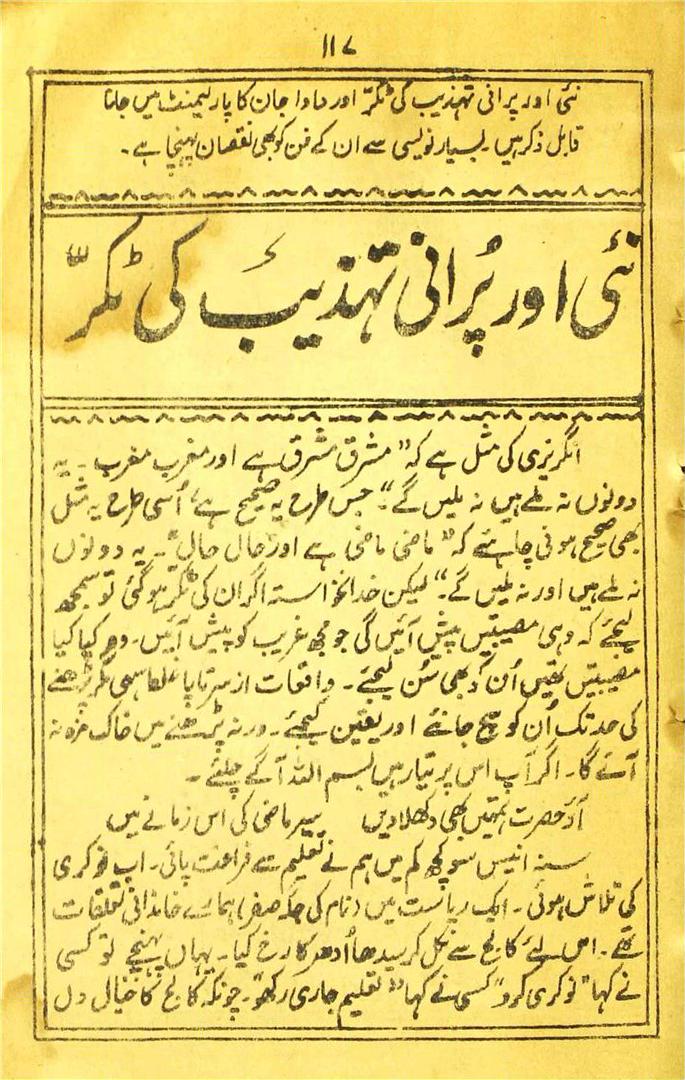 ۱۱۷
نئی اور پرانی تہذیب کی ٹکر اور دادا جان کا پارلیمنٹ میں جانا
قابل ذکر ہیں۔ بسیار نویسی سے ان کے فن کو بھی نقصان پہنچا ہے۔
نئی اور پُرانی تہذیب کی ٹکرّ
انگریزی کی مثل ہے کہ "مشرق مشرق ہے اور مغرب مغرب۔ یہ
دونوں نہ ملے ہیں نہ ملیں گے"۔ جس طرح یہ صحیح ہے، اُسی طرح یہ مثل
بھی صحیح ہونی چاہئے کہ "ماضی ماضی ہے اور حال حال"۔ یہ دونوں
نہ ملے ہیں اور نہ ملیں گے۔" لیکن خدانخواستہ اگر ان کی ٹکر ہو گئی تو سمجھ
لیجئے کہ وہی مصیبتیں پیش آئیں گی جو مجھ غریب کو پیش آئیں۔ وہ کیا کیا
مصیبتیں تھیں اُن کو بھی سُن لیجئے۔ واقعات از سر تا پا غلط سہی مگر پڑھنے
کی حد تک اُن کو سچ جانئے اور یقین کیجئے۔ ورنہ پڑھنے میں خاک مزہ نہ
آئے گا۔ اگر آپ اس پر تیار ہیں بسم اللہ آگے چلئے۔
آؤ حضرت تمہیں بھی دکھلا دیں سیر ماضی کی اس زمانے میں
سنہ انیس سو کچھ کم میں ہم نے تعلیم سے فراغت پائی۔ اب نوکری
کی تلاش ہوئی۔ ایک ریاست میں (نام کی جگہ صفر) ہمارے خاندانی تعلقات
تھے۔ اس لئے کالج سے نکل کر سیدھا اُدھر کا رخ کیا۔ یہاں پہنچے تو کسی
نے کہا "نوکری کرو" کسی نے کہا "تعلیم جاری رکھو"۔ چونکہ کالج کا خیال دل